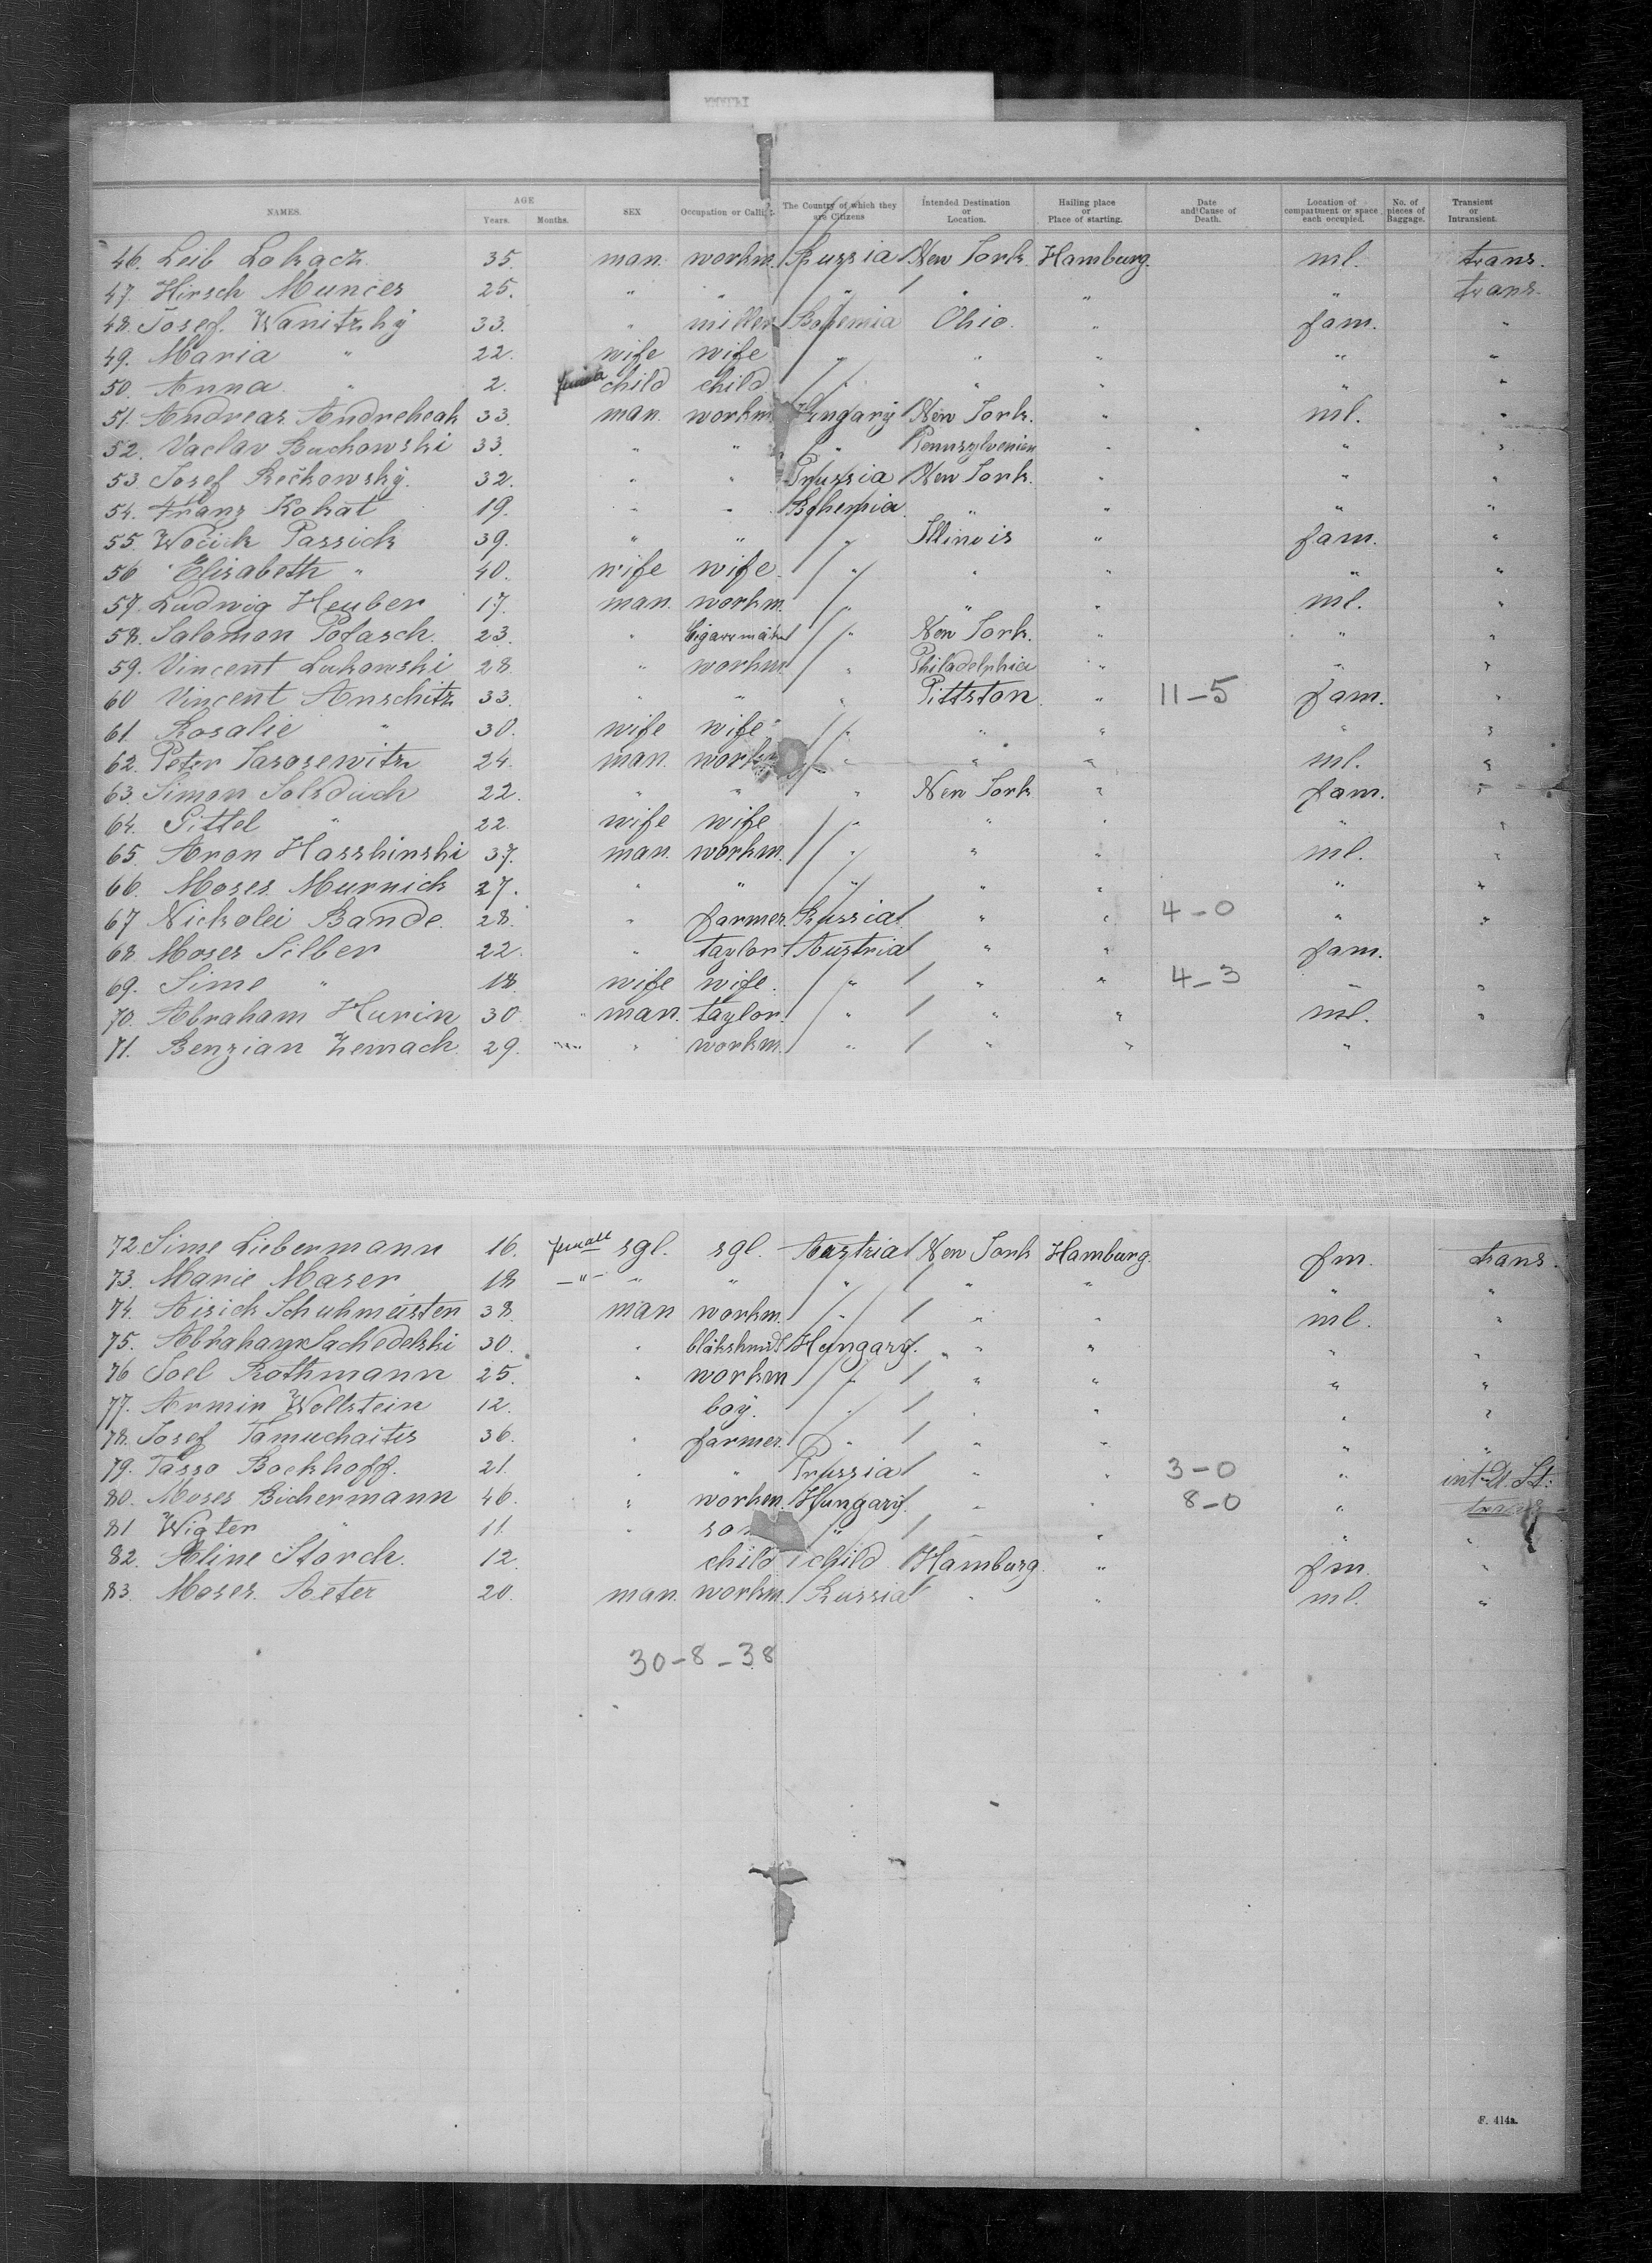 NAMES. AGE SEX Occupation or Calling The Country of which they are Citizens Intended Destination or Location. Hailing place or Place of starting. Date and Cause of Death. Location of compartment or space each occupied. No. of pieces of Baggage. Transient or Intransient.
Years. Months.
46. Leib Lokacz 35. man. workm. Russia New York Hamburg. ml. trans.
47. Hirsch Munces 25. " " " " " " trans.
48. Josef Wanitzky 33. " miller Bohemia Ohio. " fam. "
49. Maria " 22. wife wife " " " " "
50. Anna " 2. child child " " " " "
51. Andreas Andreheak 33. man. workm Hungary New York. " ml. "
52. Vaclav Buchowski 33. " " " Pennsylvenien " " "
53. Josef Rečkowsky. 32. " " Prussia New York. " " "
54. Franz Kokat 19. " " Bohemia " " " "
55. Wočick Passick 39. " " " Illinois " fam. "
56 Elisabeth " 40. wife wife. " " " " "
57. Ludwig Heuber 17. man. workm. " " " ml. "
58. Salomon Potasch. 23. " Cigarrmäk " New York. " " "
59. Vincent Lukowski 28 " workm " Philadelphia " " "
60 Vincent Anschitz 33. " " " Pittston. " 11-5 fam. "
61. Rosalie " 30. wife wife " " " " " "
62. Peter Sasosewitz 24. man. workm " " " ml. "
63. Simon Solsduch 22. " " " New York " fam. "
64. Gittel " 22. wife wife " " " " "
65. Aron Hasskinski 37. man. workm. " " " ml. "
66. Moses Murnick 27. " " " " " " "
67 Nickolei Bande. 28. " farmer Russia " " 4-0 " "
68 Moses Silber 22. " taylor Austria " " fam.
69. Sime " 18. wife wife. " " " 4-3 " "
70. Abraham Hurin 30 man. taylor. " " " ml. "
71. Benzian Zemach. 29. " workm. " " " "
72 Sime Liebermann 16. female sgl. sgl. Austria New York Hamburg. fm. trans.
73. Marie Maser 18 " " " " " " "
74. Aisick Schuhmeister 38 man workm. " " " ml. "
75. Abraham Sachedelski 30. " Hungary. " " " "
76 Joel Rothmann 25. " workm " " " " "
77. Armin Wollstein 12. boy. " " " " "
78. Josef Tamuchaites 36. " farmer. " " " " "
79. Tasso Bockhoff. 21. " " Prussia " " 3-0 " int. U. St.
80. Moses Bichermann 46. " workm. Hungary. " " 8-0 " trans
81 Wigter " 11. " son " " " " "
82. Aline Storch. 12. child child Hamburg " fm. "
83. Moses Aeter 20. man. workm. Russia " " ml. "
30-8-38
F. 414a.